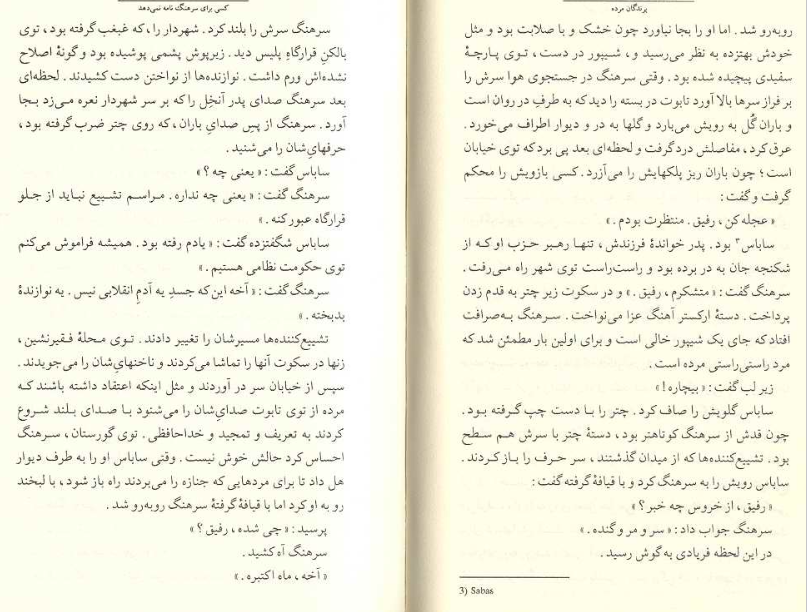 پرندگان مرده
روبه‌رو شد. اما او را بجا نیاورد چون خشک و با صلابت بود و مثل
خودش بهتزده به نظر می‌رسید و، شیپور در دست، توی پارچهٔ
سفیدی پیچیده شده بود. وقتی سرهنگ در جستجوی هوا سرش را
بر فراز سرها بالا آورد تابوت در بسته را دید که به طرفِ در روان است
و باران گُل به رویش می‌بارد و گلها به در و دیوار اطراف می‌خورد.
عرق کرد، مفاصلش درد گرفت و لحظه‌ای بعد پی برد که توی خیابان
است؛ چون باران ریز پلکهایش را می‌آزرد. کسی بازویش را محکم
گرفت و گفت:
«عجله کن، رفیق. منتظرت بودم.»
ساباس۳ بود. پدر خواندهٔ فرزندش، تنها رهبر حزب او که از
شکنجه جان به در برده بود و راست‌راست توی شهر راه می‌رفت.
سرهنگ گفت: «متشکرم، رفیق.» و در سکوت زیر چتر به قدم زدن
پرداخت. دستهٔ ارکستر آهنگ عزا می‌نواخت. سرهنگ به‌صرافت
افتاد که جای یک شیپور خالی است و برای اولین بار مطمئن شد که
مرد راستی‌راستی مرده است.
زیر لب گفت: «بیچاره!»
ساباس گلویش را صاف کرد. چتر را با دست چپ گرفته بود.
چون قدش از سرهنگ کوتاهتر بود، دستهٔ چتر با سرش هم سطح
بود. تشییع‌کننده‌ها که از میدان گذشتند، سر حرف را باز کردند.
ساباس رویش را به سرهنگ کرد و با قیافهٔ گرفته گفت:
«رفیق، از خروس چه خبر؟»
سرهنگ جواب داد: «سر و مر و گنده.»
در این لحظه فریادی به گوش رسید.
3) Sabas
کسی برای سرهنگ نامه نمی‌دهد
سرهنگ سرش را بلند کرد. شهردار را، که غبغب گرفته بود، توی
بالکنِ قرارگاهِ پلیس دید. زیرپوش پشمی پوشیده بود و گونهٔ اصلاح
نشده‌اش ورم داشت. نوازنده‌ها از نواختن دست کشیدند. لحظه‌ای
بعد سرهنگ صدای پدر آنخِل را که بر سر شهردار نعره می‌زد بجا
آورد. سرهنگ از پسِ صدایِ باران، که روی چتر ضرب گرفته بود،
حرفهایِ‌شان را می‌شنید.
ساباس گفت: «یعنی چه؟»
سرهنگ گفت: «یعنی چه نداره. مراسم تشییع نباید از جلو
قرارگاه عبور کنه.»
ساباس شگفتزده گفت: «یادم رفته بود. همیشه فراموش می‌کنم
توی حکومت نظامی هستیم.»
سرهنگ گفت: «آخه این‌که جسدِ یه آدمِ انقلابی نیس. یه نوازندهٔ
بدبخته.»
تشییع‌کننده‌ها مسیرشان را تغییر دادند. توی محلهٔ فقیرنشین،
زنها در سکوت آنها را تماشا می‌کردند و ناخنهایِ‌شان را می‌جویدند.
سپس از خیابان سر در آوردند و مثل اینکه اعتقاد داشته باشند که
مرده از توی تابوت صدایِ‌شان را می‌شنود با صدای بلند شروع
کردند به تعریف و تمجید و خداحافظی. توی گورستان، سرهنگ
احساس کرد حالش خوش نیست. وقتی ساباس او را به طرف دیوار
هل داد تا برای مردهایی که جنازه را می‌بردند راه باز شود، با لبخند
رو به او کرد اما با قیافهٔ گرفتهٔ سرهنگ روبه‌رو شد.
پرسید: «چی شده، رفیق؟»
سرهنگ آه کشید.
«آخه، ماه اکتبره.»